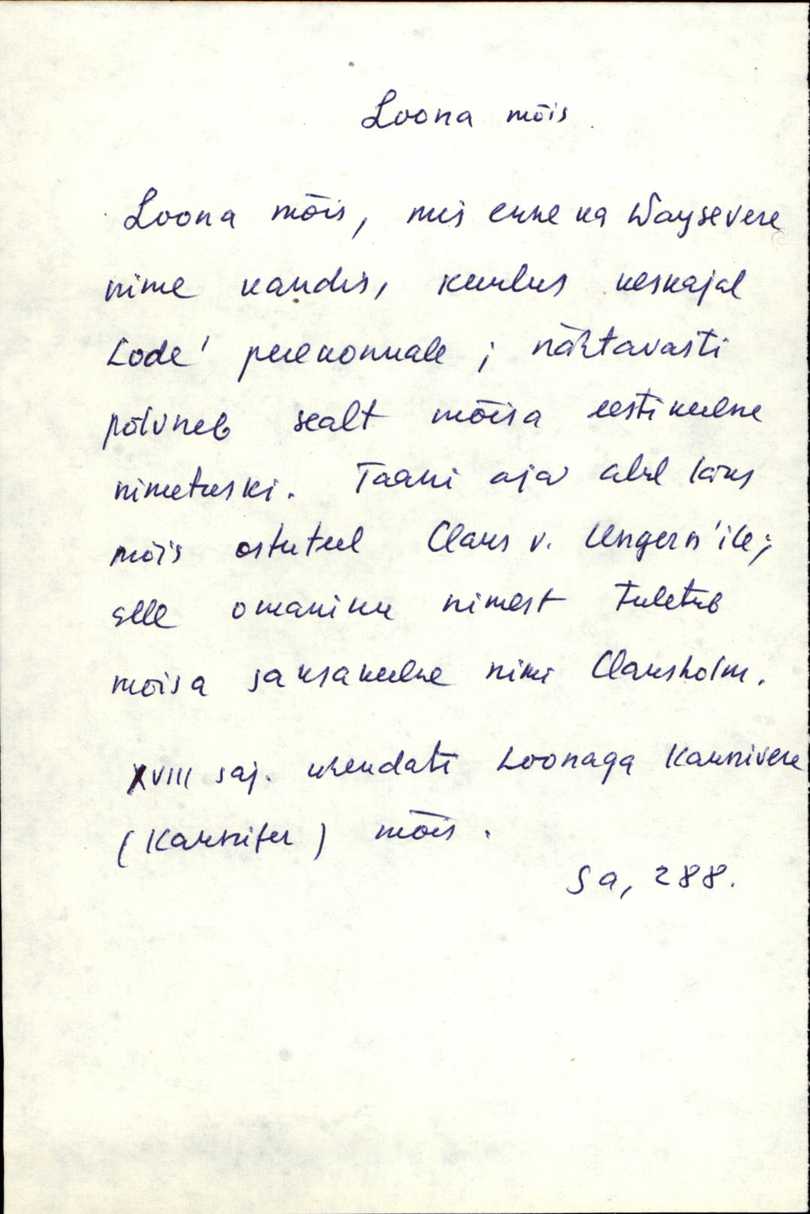 Loona mõis
Loona mõis, mis enne ka Waysevere
nime kandis, kuulus keskajal
Lode' perekonnale ; nähtavasti
põlvneb sealt mõisa eestikeelne
nimetuski. Taani aja alul läks
mõis ostuteel Claus v. Ungern'ile;
selle omaniku nimest tuletub
mõisa saksakeelne nimi Clausholm.
XVIII saj. ühendati Loonaga Kaunivere
(Kaunifer) mõis.
Sa, 288.